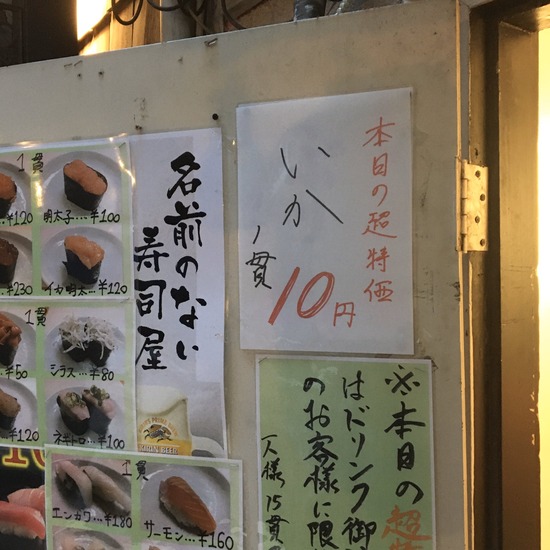 本日の超特価
いか
1貫
10円
名前のない
寿司屋
※本日の超特
はドリンク御
のお客様に限
一人様15貫
1貫
¥120
明太子…¥100
¥230
イカ明太…¥120
1貫
¥50
シラス…¥80
¥120
ネギトロ…¥100
1貫
エンガワ…¥180
サーモン…¥160
KIRIN'S PRIME BREW
KIRIN BEER